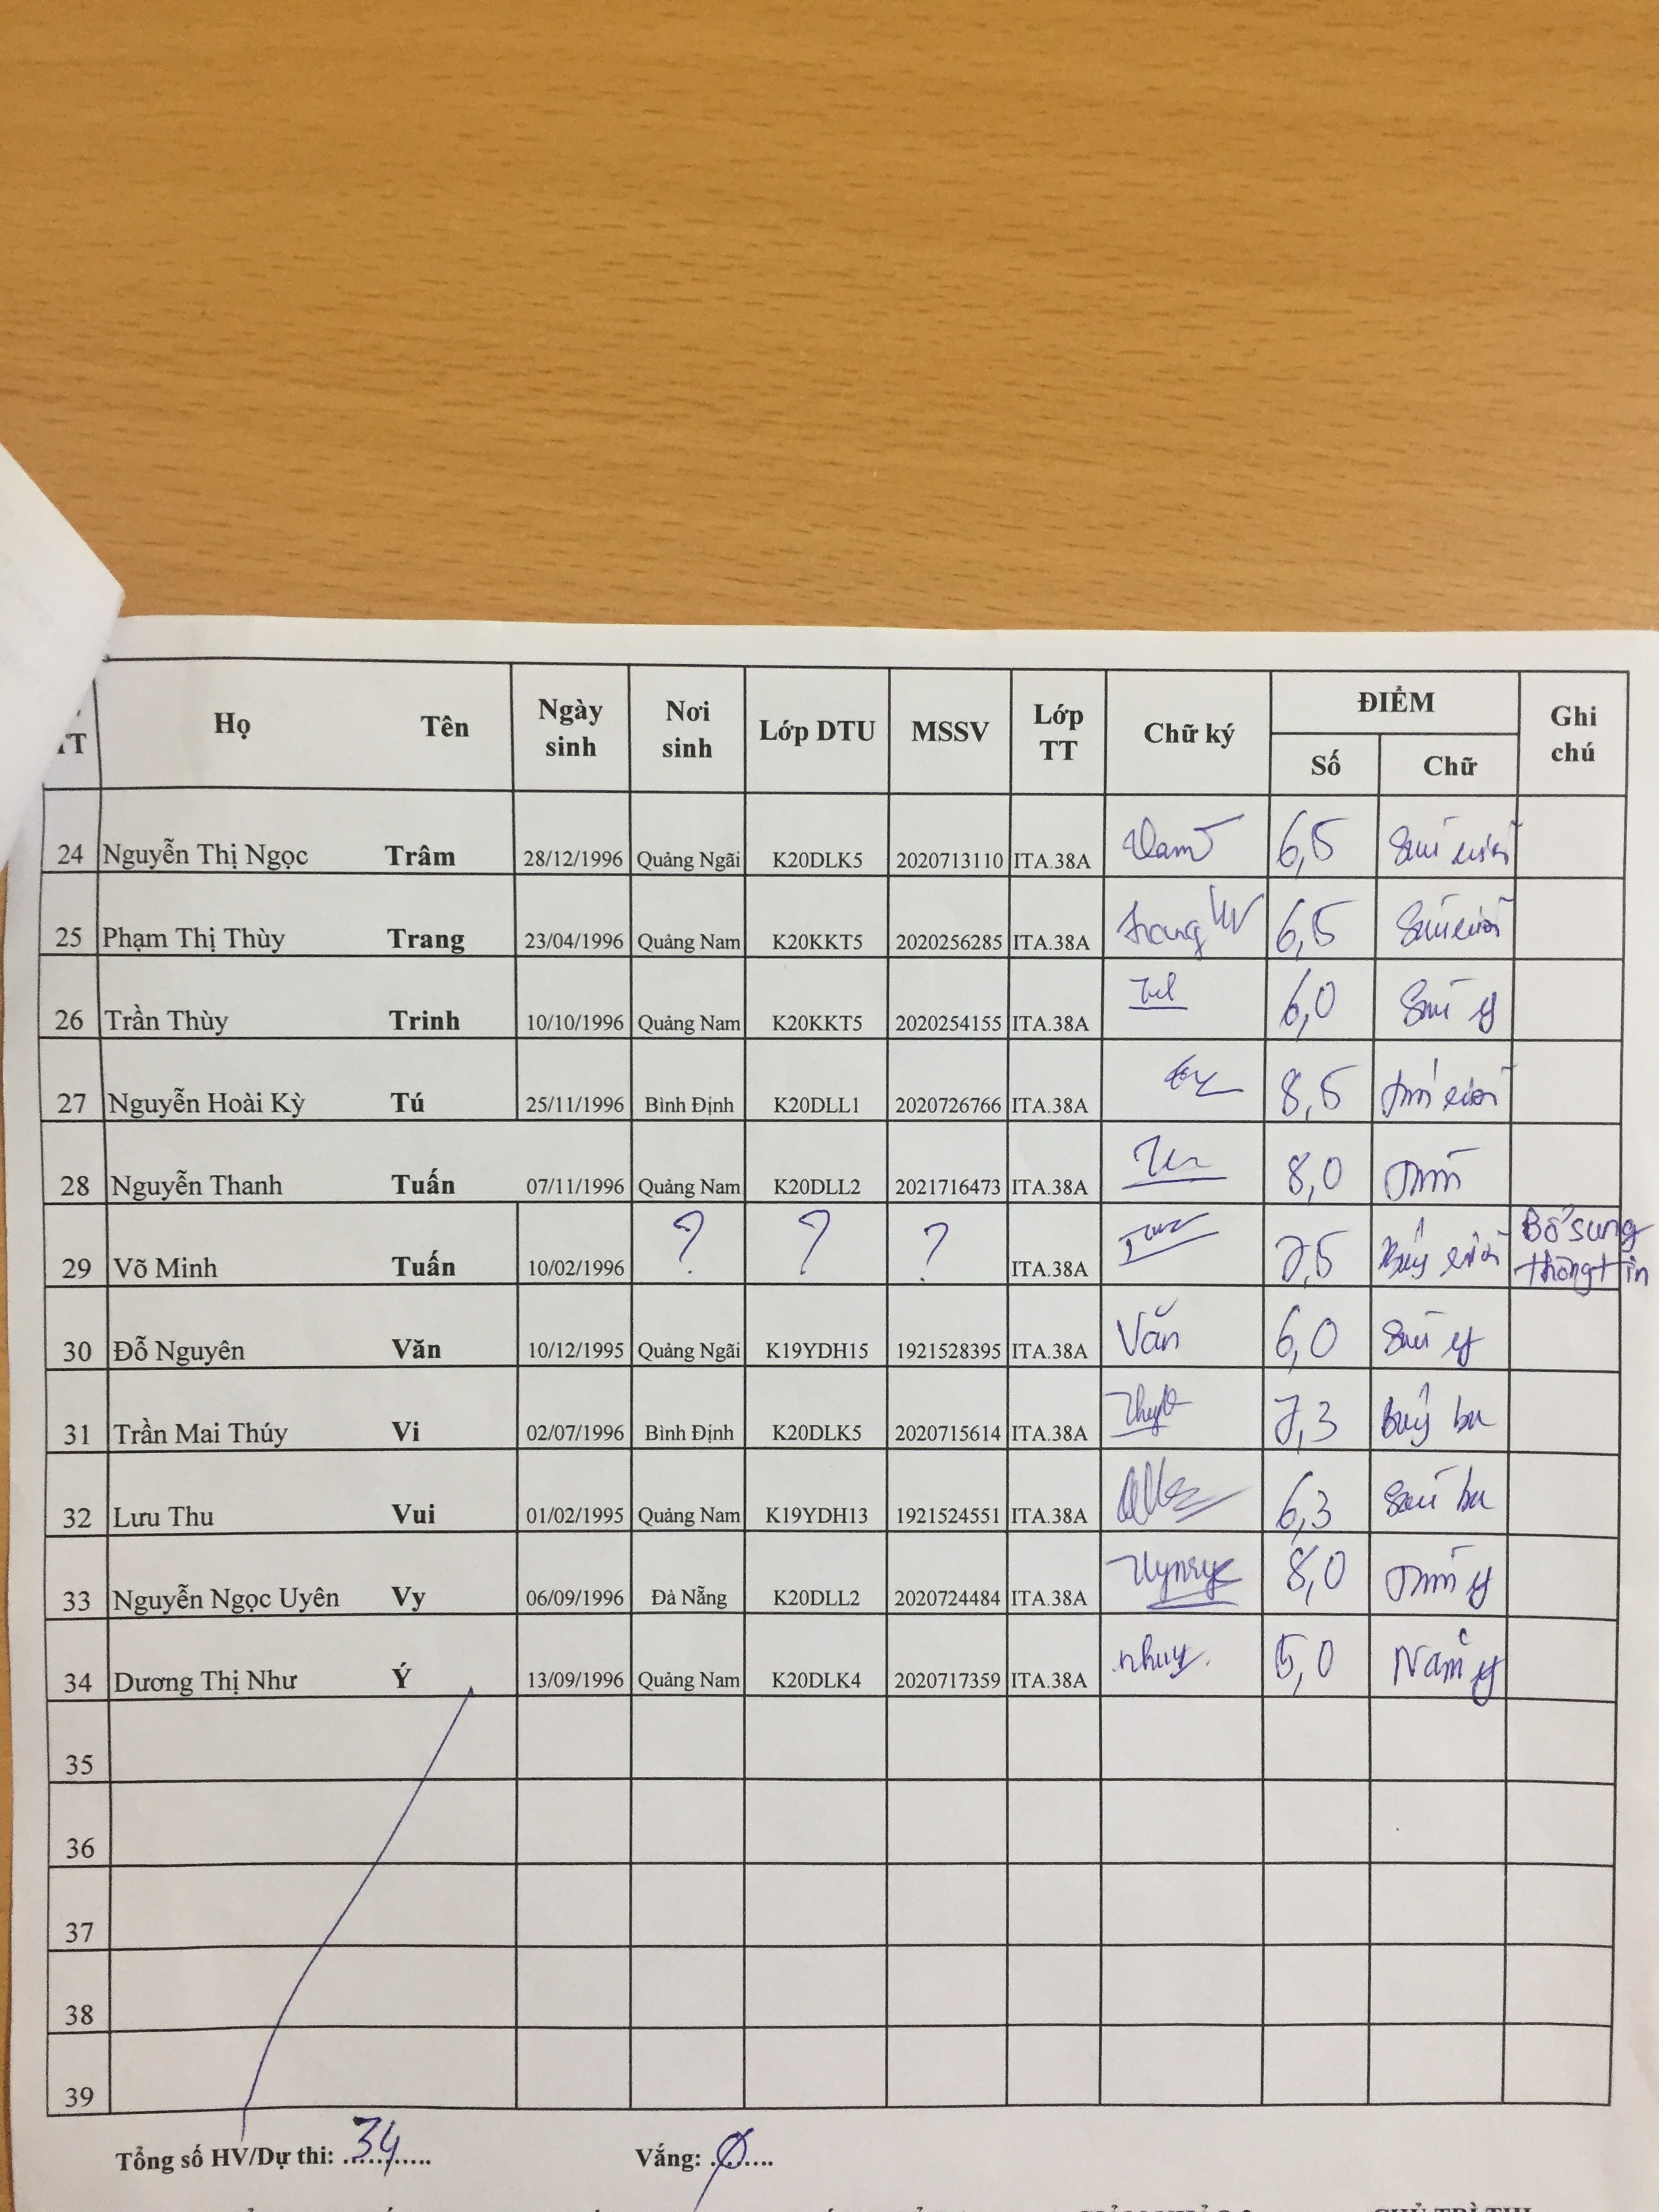 TT Họ Tên Ngày sinh Nơi sinh Lớp DTU MSSV Lớp TT Chữ ký ĐIỂM Ghi chú
Số Chữ
24 Nguyễn Thị Ngọc Trâm 28/12/1996 Quảng Ngãi K20DLK5 2020713110 ITA.38A 6,5
25 Phạm Thị Thùy Trang 23/04/1996 Quảng Nam K20KKT5 2020256285 ITA.38A trang 6,5
26 Trần Thùy Trinh 10/10/1996 Quảng Nam K20KKT5 2020254155 ITA.38A 6,0
27 Nguyễn Hoài Kỳ Tú 25/11/1996 Bình Định K20DLL1 2020726766 ITA.38A 8,5
28 Nguyễn Thanh Tuấn 07/11/1996 Quảng Nam K20DLL2 2021716473 ITA.38A 8,0
29 Võ Minh Tuấn 10/02/1996 ? ? ? ITA.38A 7,5 Bổ sung thông tin
30 Đỗ Nguyên Văn 10/12/1995 Quảng Ngãi K19YDH15 1921528395 ITA.38A Văn 6,0
31 Trần Mai Thúy Vi 02/07/1996 Bình Định K20DLK5 2020715614 ITA.38A 7,3 bảy ba
32 Lưu Thu Vui 01/02/1995 Quảng Nam K19YDH13 1921524551 ITA.38A 6,3 Sáu ba
33 Nguyễn Ngọc Uyên Vy 06/09/1996 Đà Nẵng K20DLL2 2020724484 ITA.38A 8,0
34 Dương Thị Như Ý 13/09/1996 Quảng Nam K20DLK4 2020717359 ITA.38A nhuy 5,0 Năm
35
36
37
38
39
Tổng số HV/Dự thi: ....34.... Vắng: ..0....
CHỦ TRÌ THI